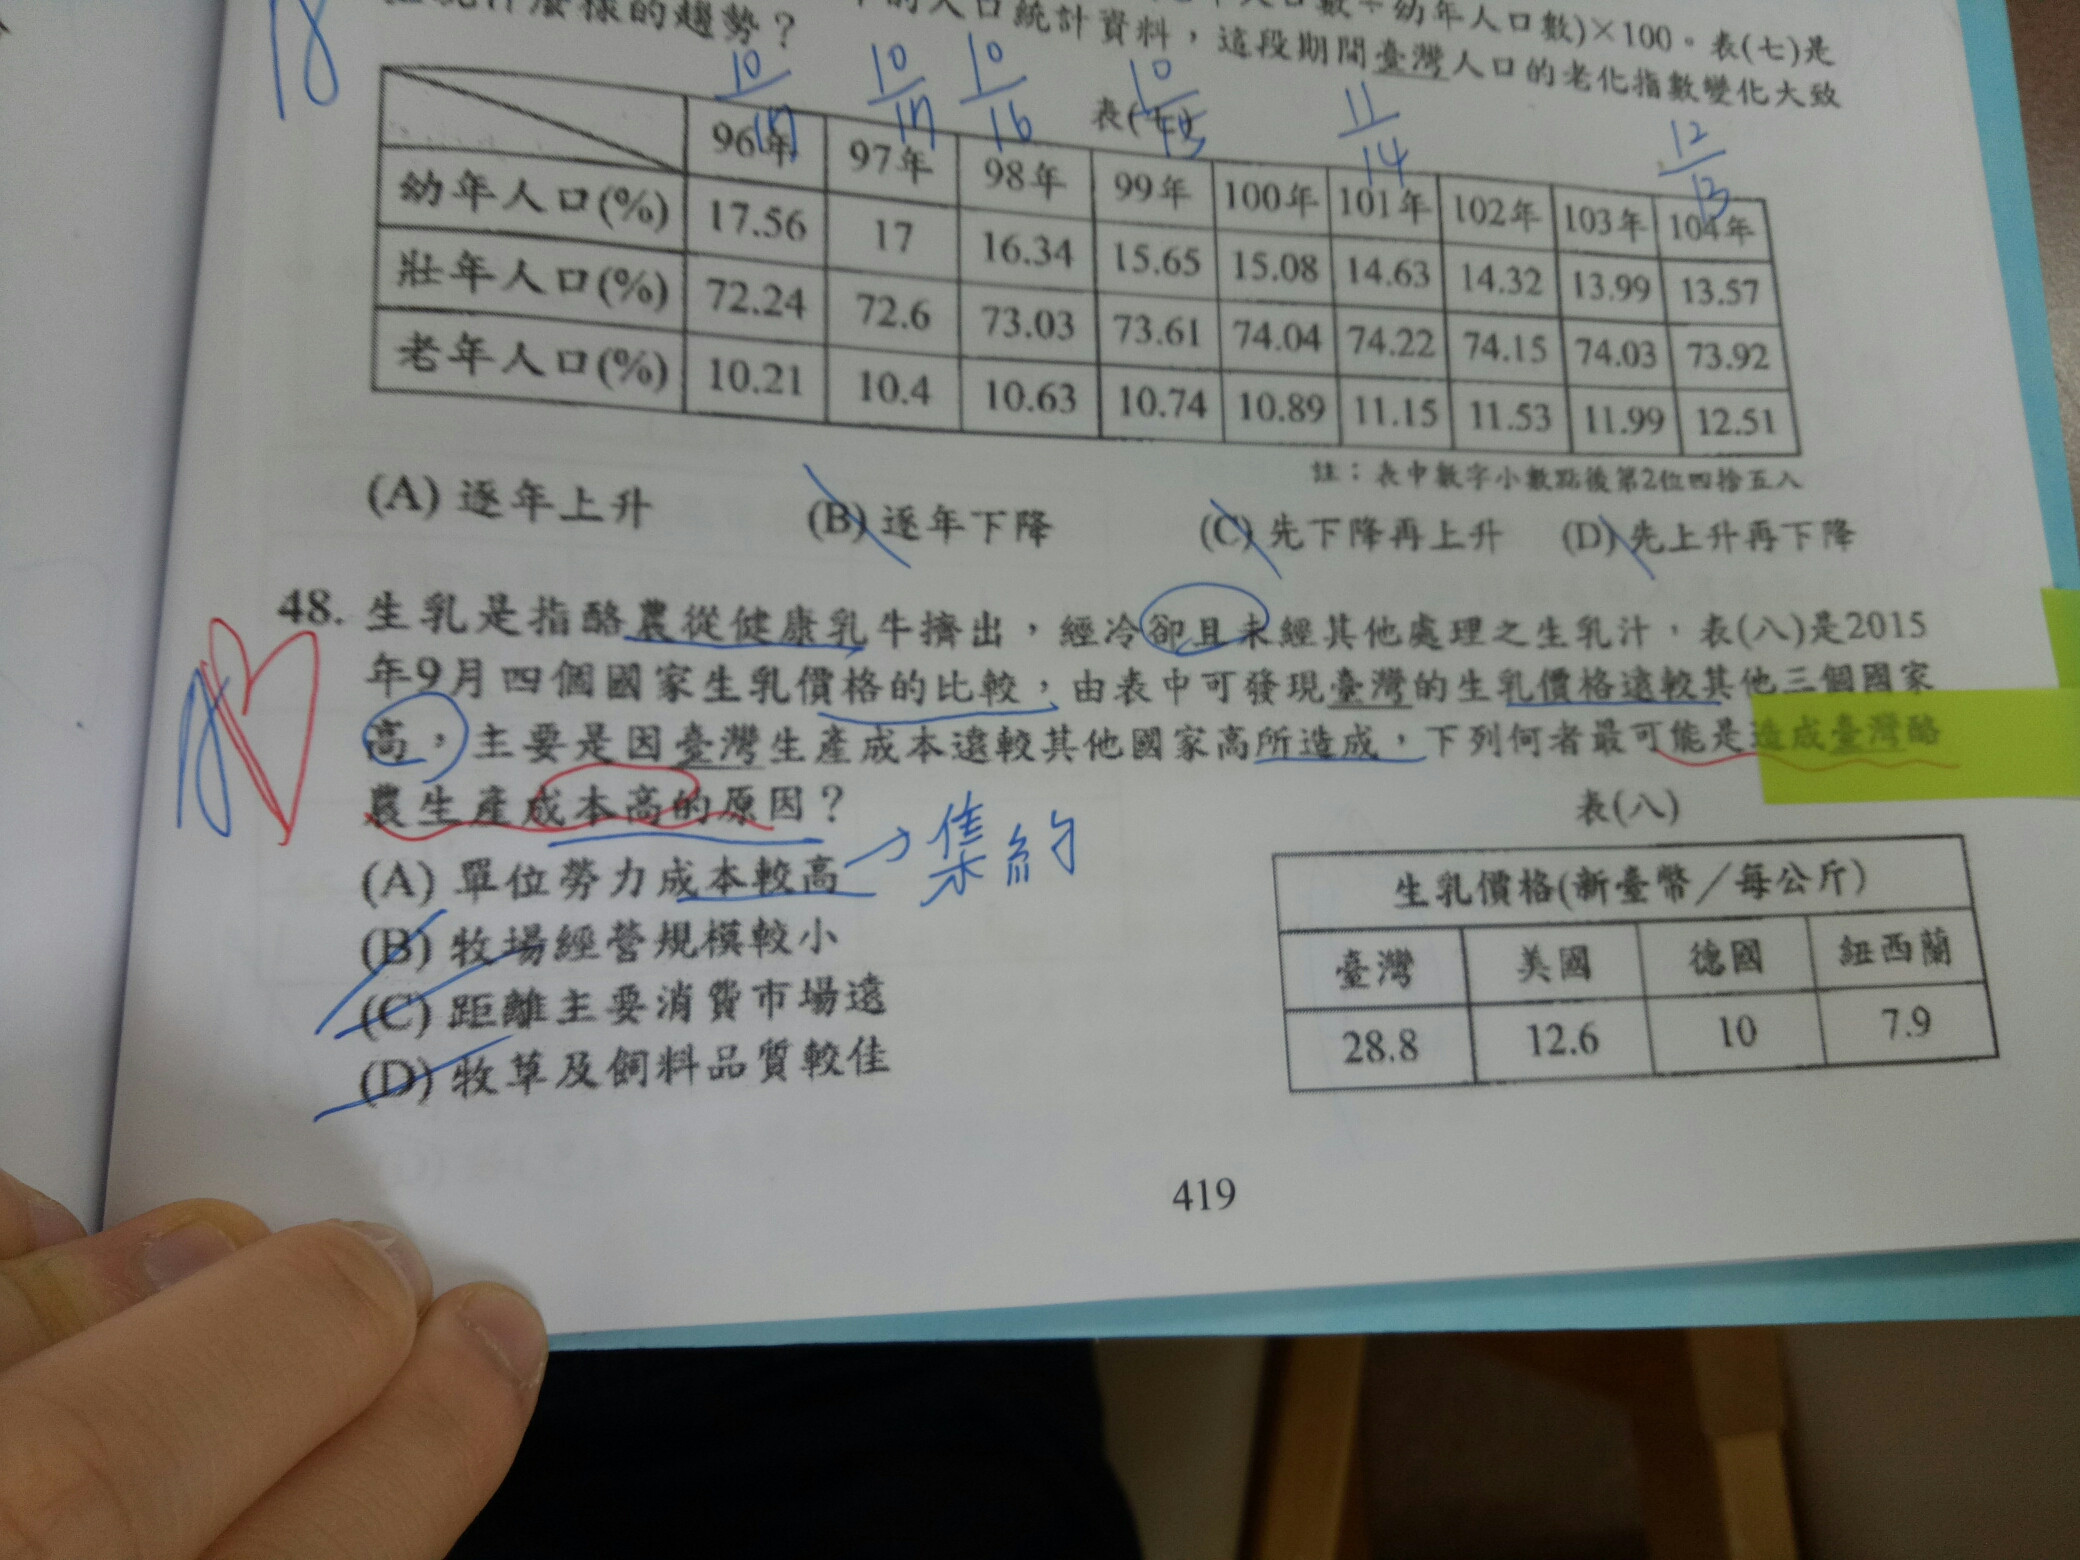 麼樣的趨勢?
人口統計資料,這段期間臺灣人口的老化指數變化大致
幼年人口數)×100。表(七)是
10/17 10/17 10/16 10/15 11/14 12/13
表(七)
96年 97年 98年 99年 100年 101年 102年 103年 104年
幼年人口(%) 17.56 17 16.34 15.65 15.08 14.63 14.32 13.99 13.57
壯年人口(%) 72.24 72.6 73.03 73.61 74.04 74.22 74.15 74.03 73.92
老年人口(%) 10.21 10.4 10.63 10.74 10.89 11.15 11.53 11.99 12.51
註:表中數字小數點後第2位四捨五入
(A) 逐年上升 (B) 逐年下降 (C) 先下降再上升 (D) 先上升再下降
48. 生乳是指酪農從健康乳牛擠出,經冷卻且未經其他處理之生乳汁,表(八)是2015
年9月四個國家生乳價格的比較,由表中可發現臺灣的生乳價格遠較其他三個國家
高,主要是因臺灣生產成本遠較其他國家高所造成,下列何者最可能是造成臺灣酪
農生產成本高的原因?
(A) 單位勞力成本較高
集約
(B) 牧場經營規模較小
(C) 距離主要消費市場遠
(D) 牧草及飼料品質較佳
表(八)
生乳價格(新臺幣/每公斤)
臺灣 美國 德國 紐西蘭
28.8 12.6 10 7.9
419